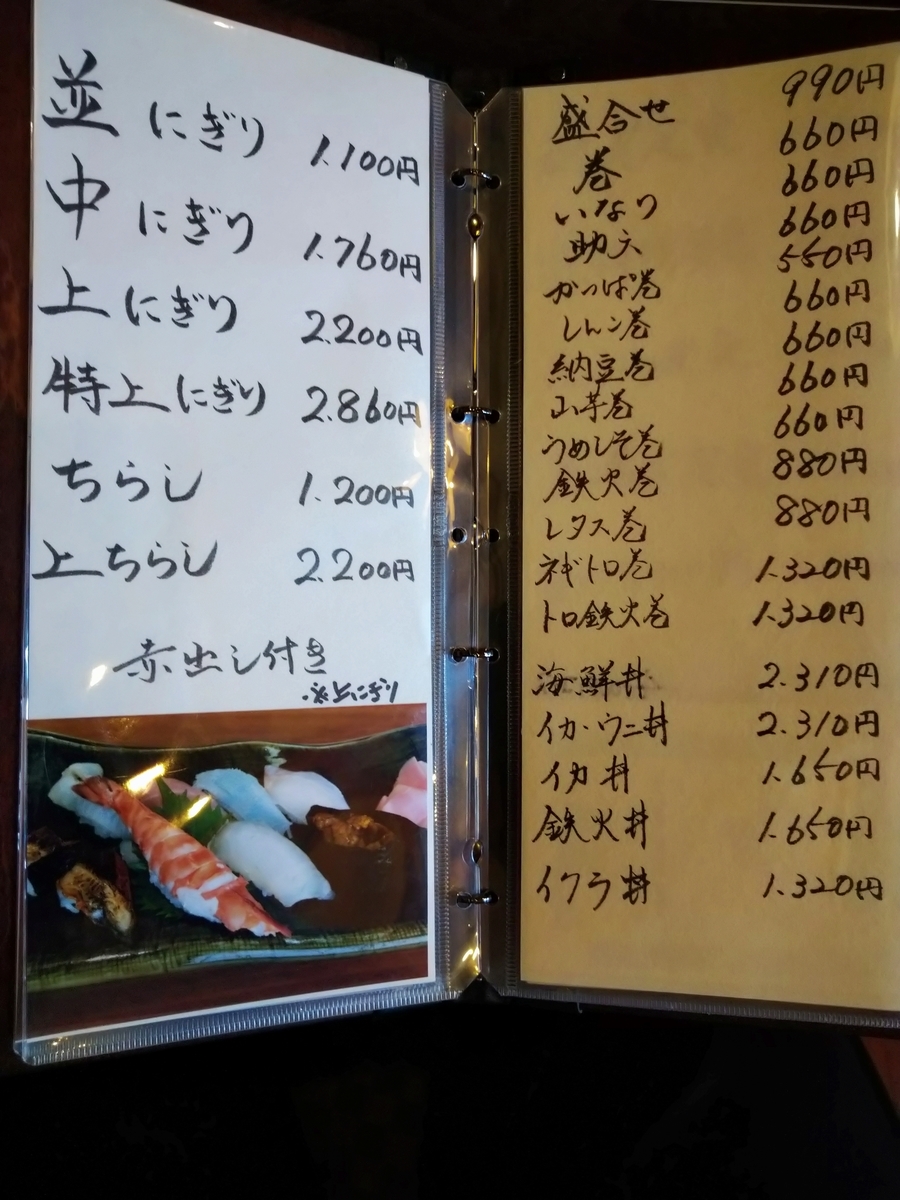 並 にぎり 1.100円
中 にぎり 1.760円
上 にぎり 2.200円
特上 にぎり 2.860円
ちらし 1.200円
上ちらし 2.200円
赤出し付き
※上にぎり
盛合せ 990円
巻 660円
いなり 660円
助六 660円
かっぱ巻 550円
しんこ巻 660円
納豆巻 660円
山芋巻 660円
うめしそ巻 660円
鉄火巻 880円
レタス巻 880円
ネギトロ巻 1.320円
トロ鉄火巻 1.320円
海鮮丼 2.310円
イカ・ウニ丼 2.310円
イカ丼 1.650円
鉄火丼 1.650円
イクラ丼 1.320円